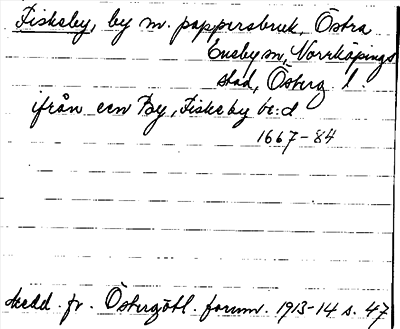 Fiskeby, by m. pappersbruk, Östra
Eneby sn, Norrköpings
stad, Österg l.
ifrån een By, Fiskeby be:d
1667-84
Medd. fr. Östergötl. fornm. 1913-14 s. 47